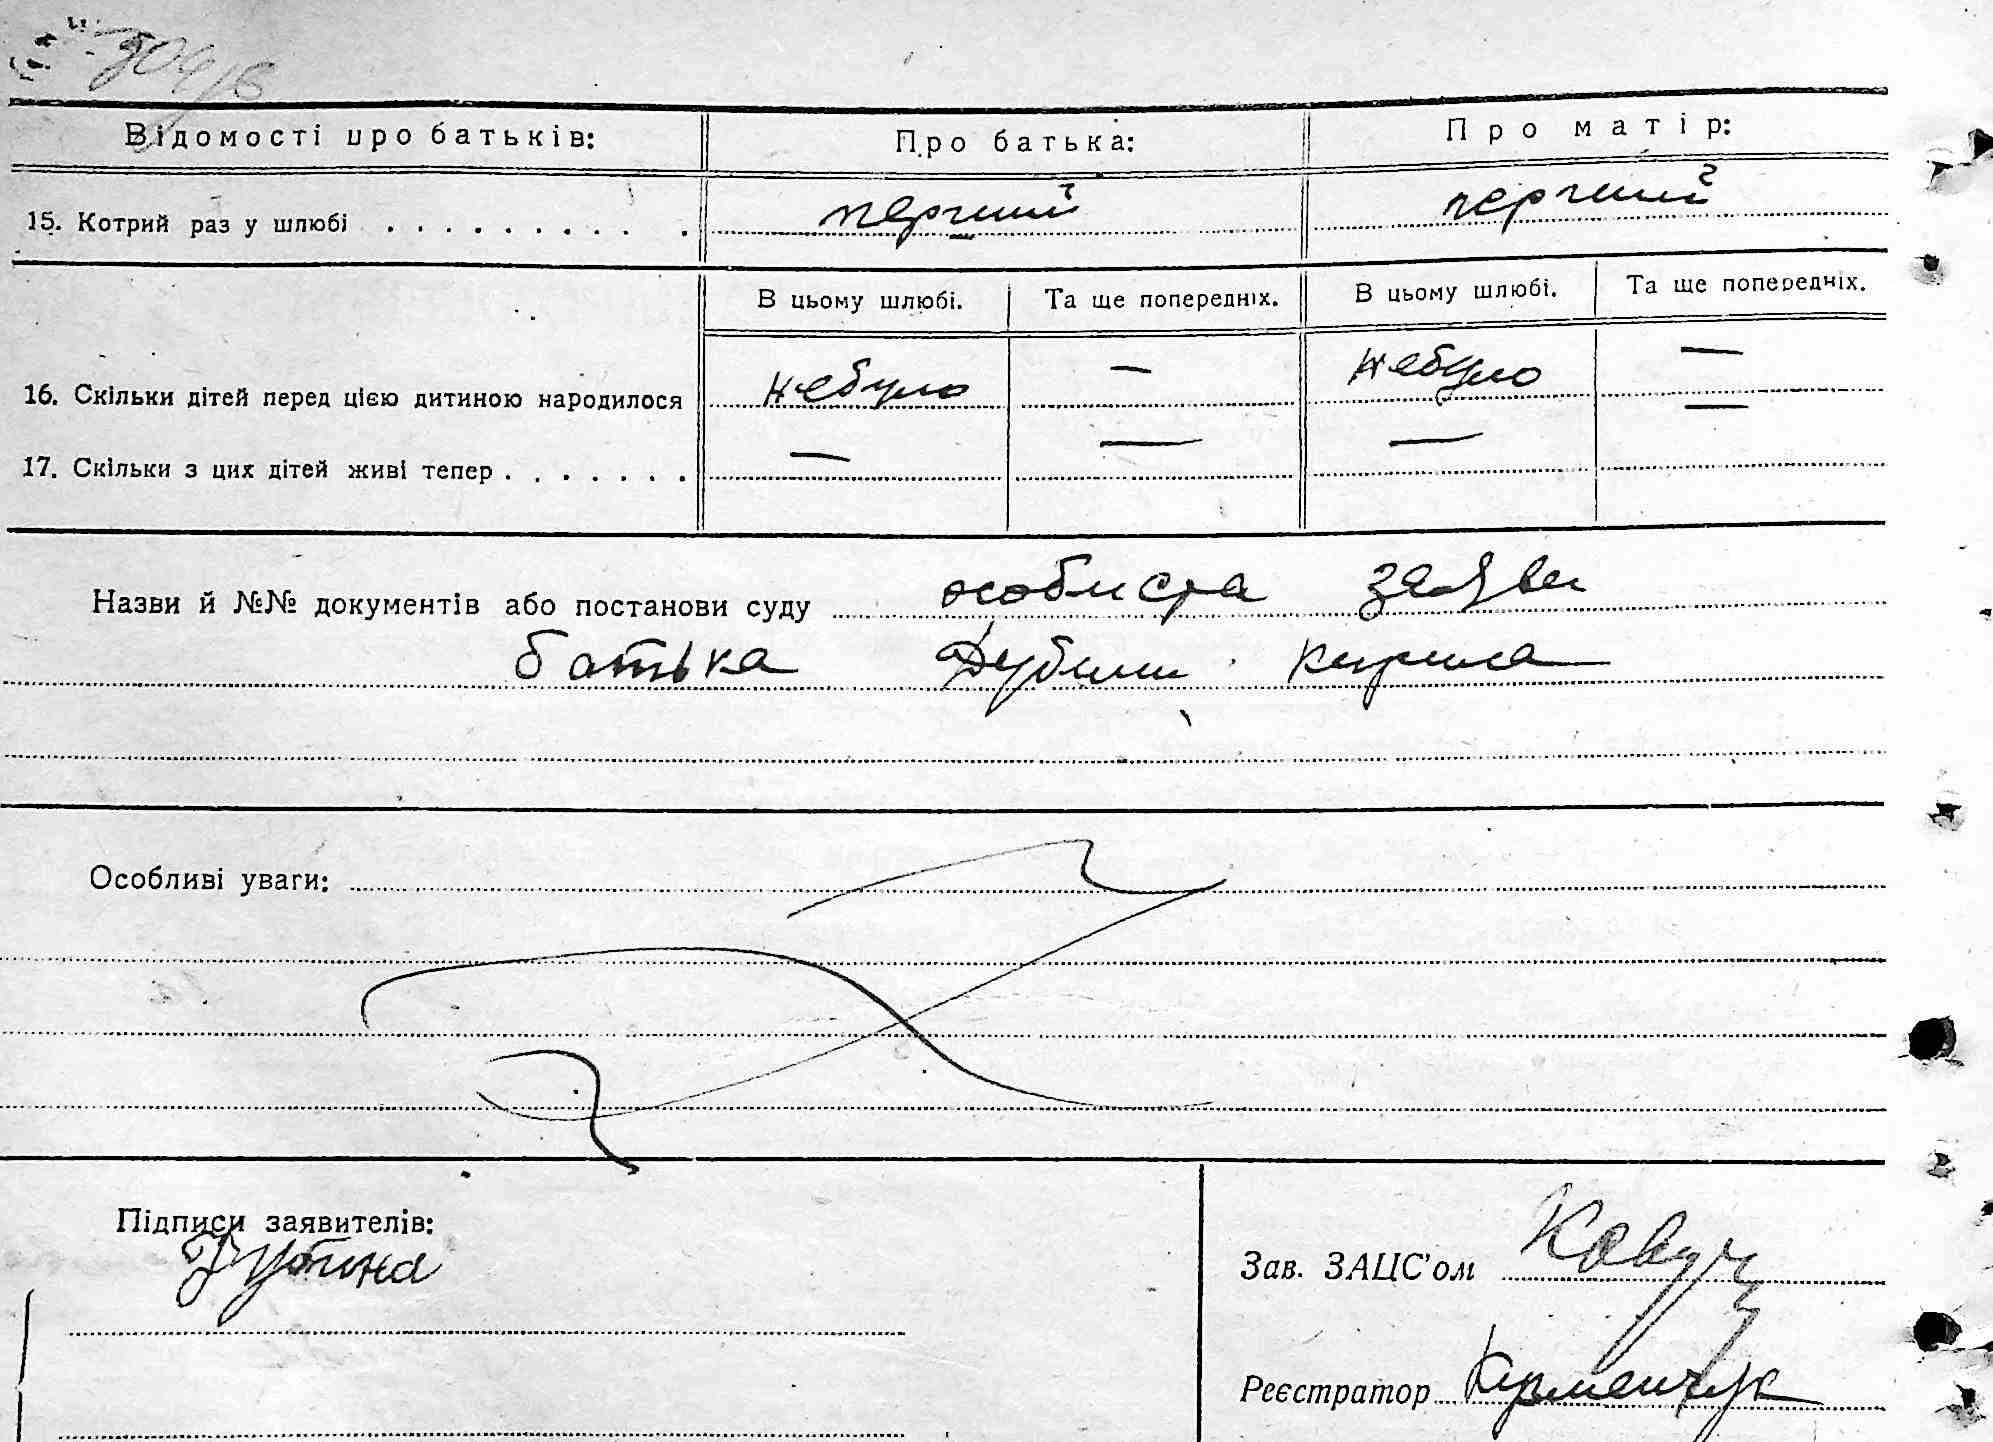 Відомості про батьків: Про батька: Про матір:
15. Котрий раз у шлюбі . . . . . . . . . . . перший перший
В цьому шлюбі. Та ще попередніх. В цьому шлюбі. Та ще попередніх.
16. Скільки дітей перед цією дитиною народилося небуло — небуло —
17. Скільки з цих дітей живі тепер . . . . . . . — — — —
Назви й №№ документів або постанови суду особиста заява
батька Дубини Кирила
Особливі уваги:
Підписи заявителів:
Дубина
Зав. ЗАЦС'ом
Реєстратор